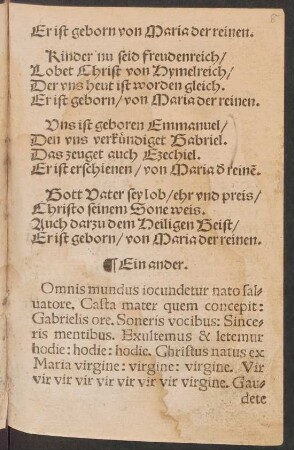 8
Er ist geborn von Maria der reinen.
Kinder nu seid freudenreich/
Lobet Christ von Hymelreich/
Der vns heut ist worden gleich.
Er ist geborn/ von Maria der reinen.
Vns ist geboren Emmanuel/
Den vns verkündiget Gabriel.
Das zeuget auch Ezechiel.
Er ist erschienen/ von Maria d̕ reinē.
Gott Vater sey lob/ ehr vnd preis/
Christo seinem Sone weis.
Auch darzu dem Heiligen Geist/
Er ist geborn/ von Maria der reinen.
¶ Ein ander.
Omnis mundus iocundetur nato sal⸗
uatore. Casta mater quem concepit:
Gabrielis ore. Soneris vocibus: Since⸗
ris mentibus. Exultemus & letemur
hodie: hodie: hodie. Christus natus ex
Maria virgine: virgine: virgine. Vir
vir vir vir vir vir vir vir virgine. Gau⸗
dete